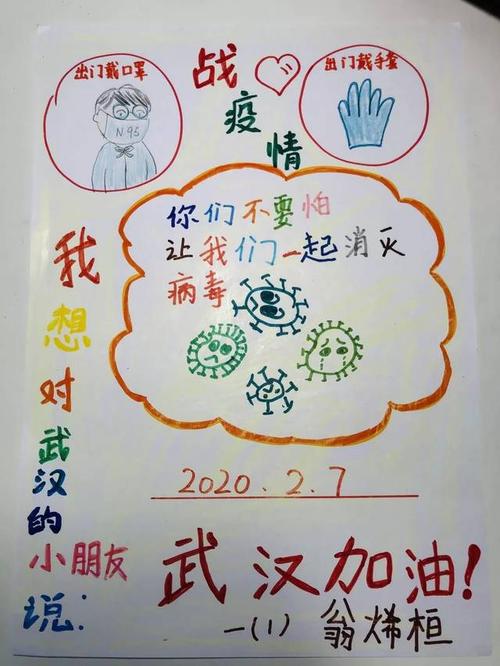 出门戴口罩
N95
战疫情
出门戴手套
我想对武汉的小朋友说:
你们不要怕
让我们一起消灭
病毒
2020.2.7
武汉加油!
一(1) 翁烯桓